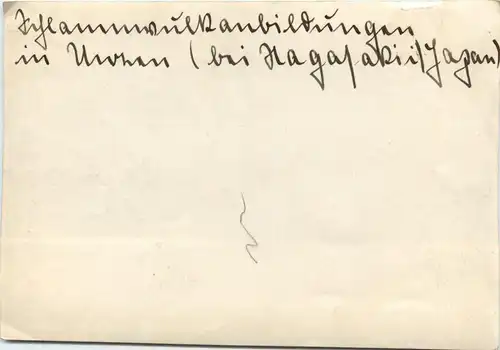 Schlammvulkanbildungen
in Unzen (bei Nagasaki i/Japan)